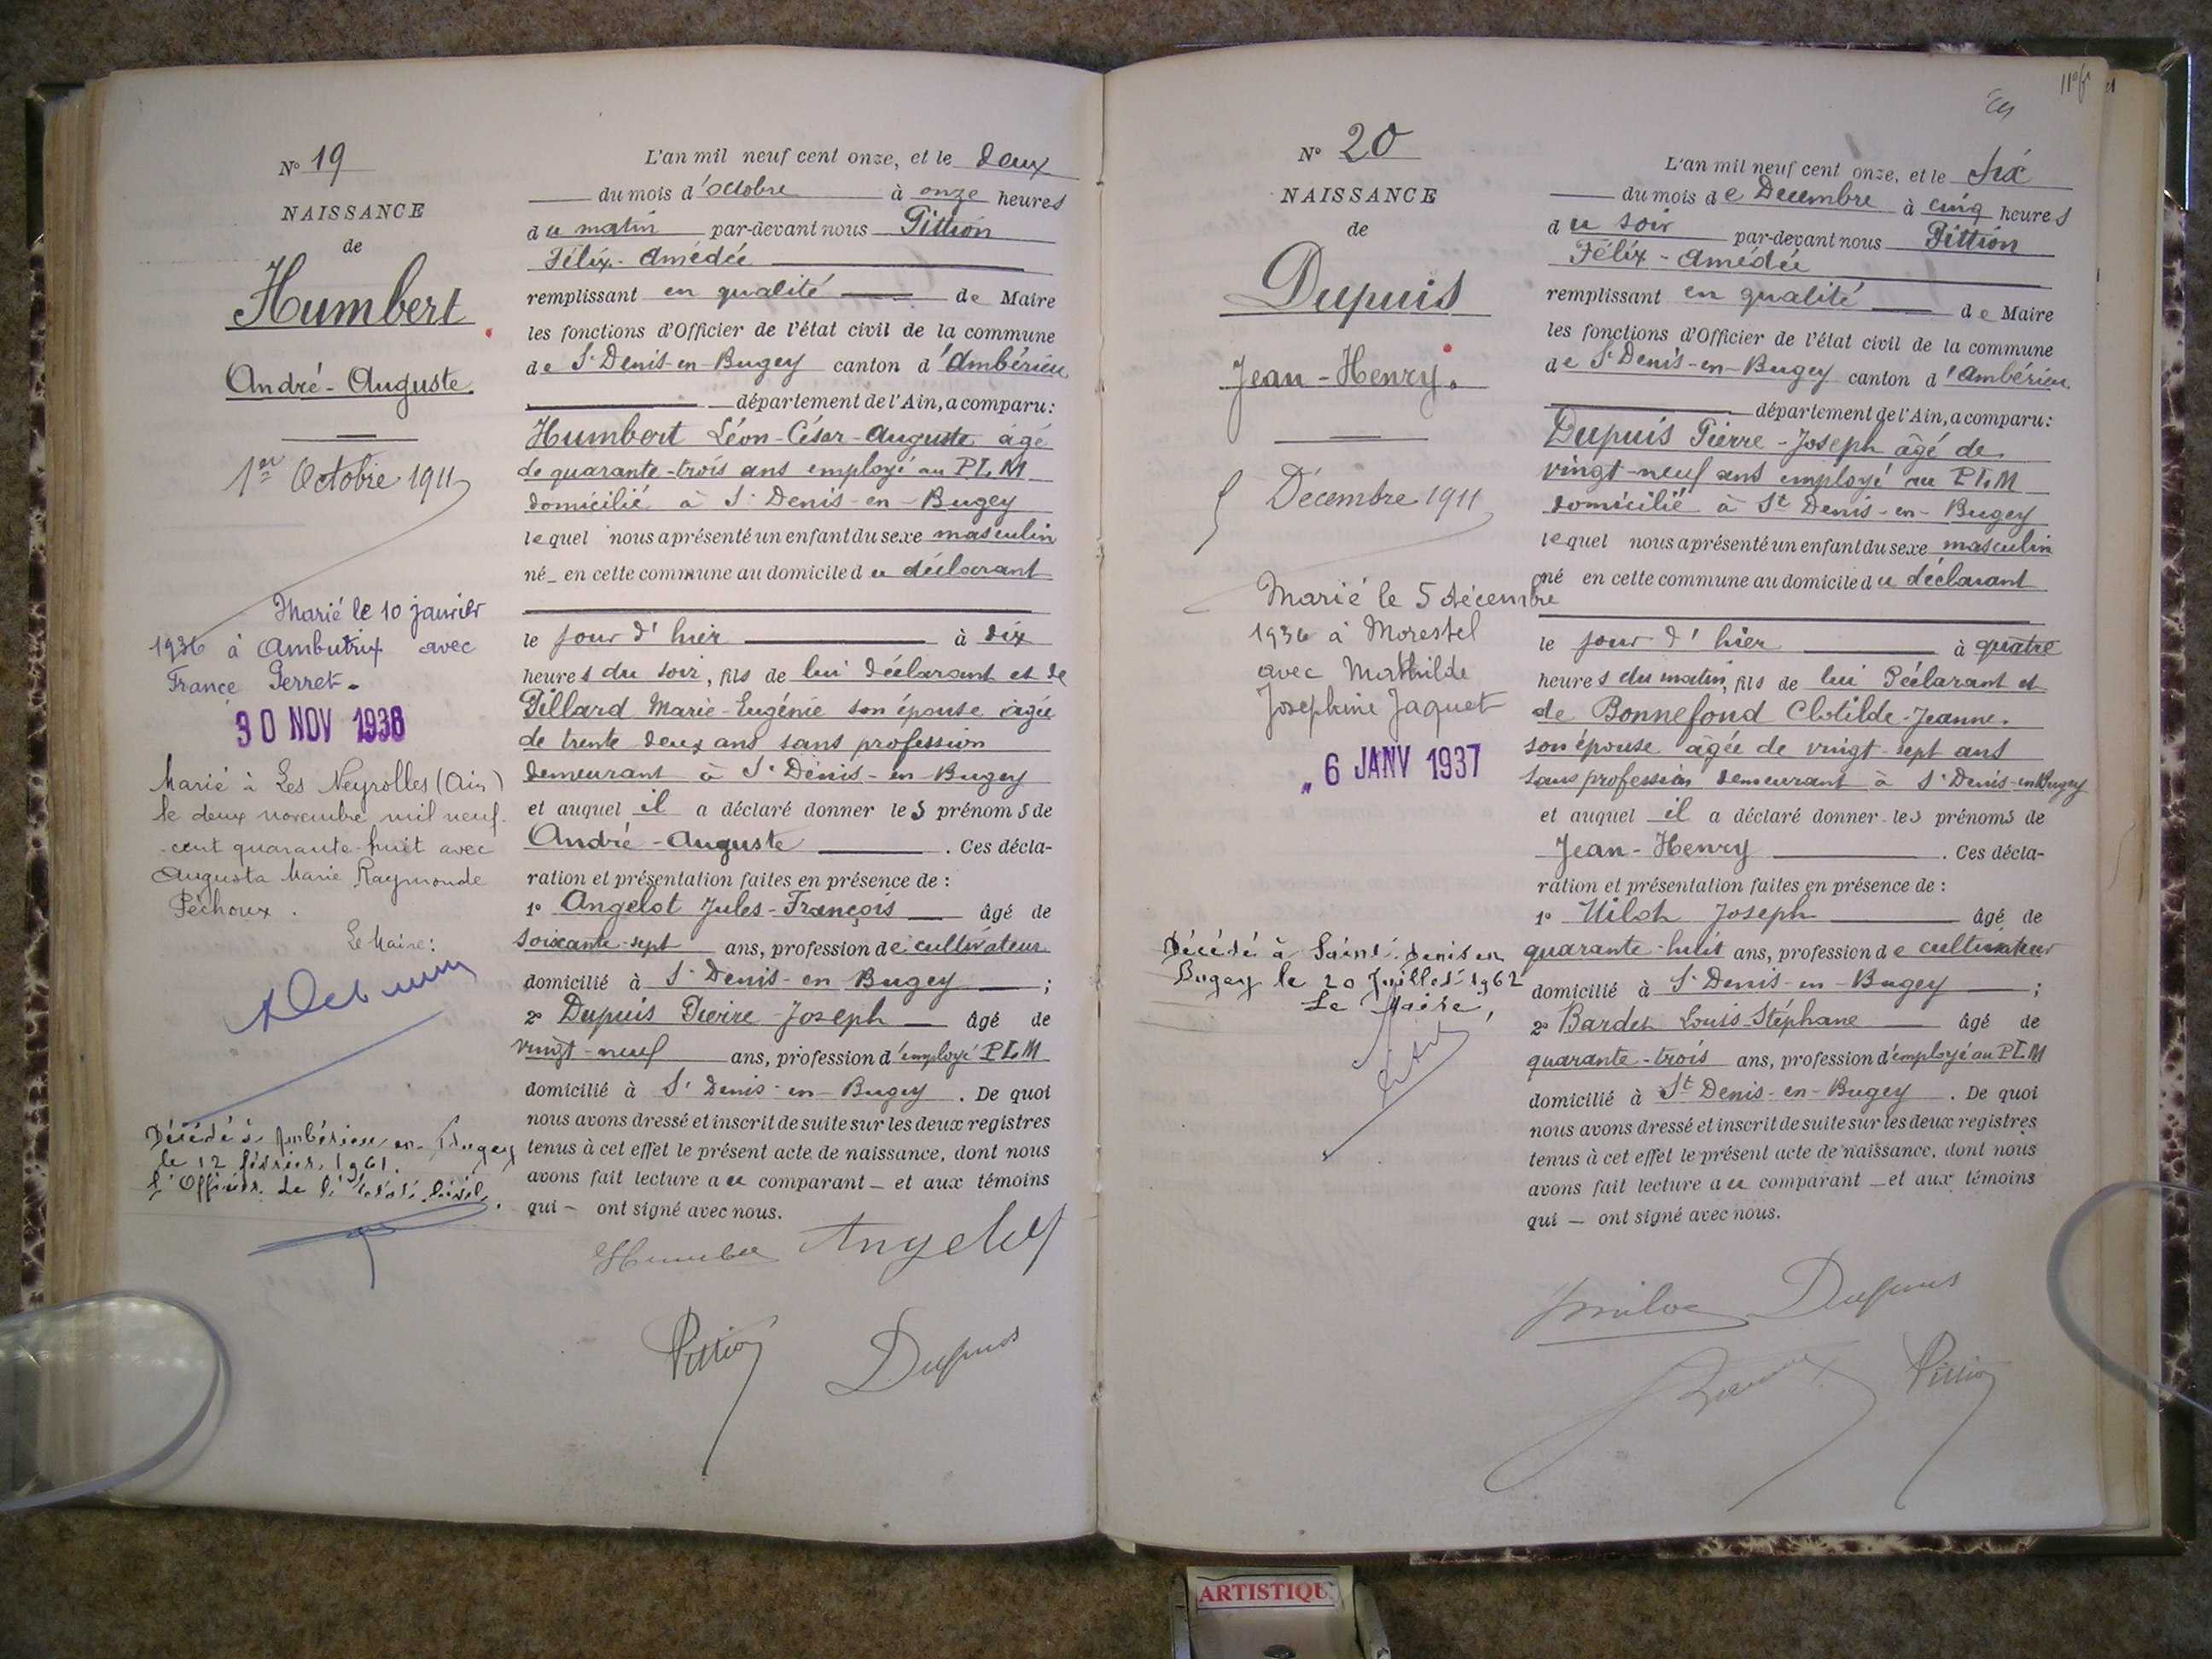 N° 19
NAISSANCE
de
Humbert
André-Auguste.
1er Octobre 1911
Marié le 10 janvier
1936 à Ambutrix avec
France Perret.
30 NOV 1936
Marié à Les Neyrolles (Ain)
le deux novembre mil neuf
cent quarante-huit avec
Augusta Marie Raymonde
Péchoux.
Le Maire:
Décédé à Ambérieu-en-Bugey
le 12 février 1961.
L'Officier de l'état civil.
L'an mil neuf cent onze, et le deux
du mois d'octobre à onze heures
du matin par-devant nous Pittion
Félix-Amédée
remplissant en qualité de Maire
les fonctions d'Officier de l'état civil de la commune
de St Denis-en-Bugey canton d'Ambérieu
département de l'Ain, a comparu:
Humbert Léon-César-Auguste âgé
de quarante-trois ans employé au PLM
domicilié à St Denis-en-Bugey
lequel nous a présenté un enfant du sexe masculin
né en cette commune au domicile du déclarant
le jour d'hier à dix
heures du soir, fils de lui déclarant et de
Pillard Marie-Eugénie son épouse âgée
de trente deux ans sans profession
demeurant à St Denis-en-Bugey
et auquel il a déclaré donner les prénoms de
André-Auguste. Ces décla-
ration et présentation faites en présence de:
1° Angelot Jules-François âgé de
soixante-sept ans, profession de cultivateur
domicilié à St Denis-en-Bugey;
2° Dupuis Pierre-Joseph âgé de
vingt-neuf ans, profession d'employé PLM
domicilié à St Denis-en-Bugey. De quoi
nous avons dressé et inscrit de suite sur les deux registres
tenus à cet effet le présent acte de naissance, dont nous
avons fait lecture au comparant et aux témoins
qui ont signé avec nous.
Humbert Angelot
Pittion Dupuis
N° 20
NAISSANCE
de
Dupuis
Jean-Henry.
5 Décembre 1911
Marié le 5 décembre
1936 à Morestel
avec Mathilde
Josephine Jaquet
6 JANV 1937
Décédé à Saint-Denis en
Bugey le 20 Juillet 1962
Le Maire,
L'an mil neuf cent onze, et le Six
du mois de Decembre à cinq heures
du soir par-devant nous Pittion
Félix-Amédée
remplissant en qualité de Maire
les fonctions d'Officier de l'état civil de la commune
de St Denis-en-Bugey canton d'Ambérieu
département de l'Ain, a comparu:
Dupuis Pierre-Joseph âgé de
vingt-neuf ans employé au PLM
domicilié à St Denis-en-Bugey
lequel nous a présenté un enfant du sexe masculin
né en cette commune au domicile du déclarant
le jour d'hier à quatre
heures du matin, fils de lui déclarant et
de Bonnefond Clotilde-Jeanne.
son épouse âgée de vingt-sept ans
sans profession demeurant à St Denis-en-Bugey
et auquel il a déclaré donner les prénoms de
Jean-Henry. Ces décla-
ration et présentation faites en présence de:
1° Joseph âgé de
quarante-huit ans, profession de cultivateur
domicilié à St Denis-en-Bugey;
2° Bardet Louis-Stéphane âgé de
quarante-trois ans, profession d'employé au PLM
domicilié à St Denis-en-Bugey. De quoi
nous avons dressé et inscrit de suite sur les deux registres
tenus à cet effet le présent acte de naissance, dont nous
avons fait lecture au comparant et aux témoins
qui ont signé avec nous.
Dupuis
Pittion
ARTISTIQU